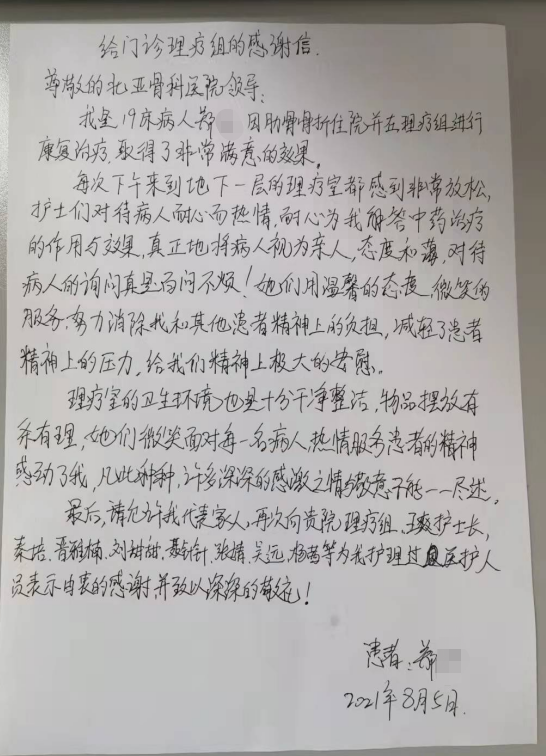 给门诊理疗组的感谢信.
尊敬的北亚骨科医院领导:
我是19床病人郑 因肋骨骨折住院并在理疗组进行
康复治疗,取得了非常满意的效果。
每次下午来到地下一层的理疗室都感到非常放松,
护士们对待病人耐心而热情,耐心为我解答中药治疗
的作用与效果,真正地将病人视为亲人,态度和蔼,对待
病人的询问真是百问不烦!她们用温馨的态度,微笑的
服务,努力消除我和其他患者精神上的负担,减轻了患者
精神上的压力,给我们精神上极大的安慰。
理疗室的卫生环境也是十分干净整洁,物品摆放有
条有理,她们微笑面对每一名病人,热情服务患者的精神
感动了我,凡此种种,许多深深的感激之情与敬意不能一一尽述,
最后,请允许我代表家人,再次向贵院理疗组, 护士长,
秦培,晋雅楠,刘甜甜, 张婧,吴远,杨茜等为我护理过 医护人
员表示由衷的感谢,并致以深深的敬意!
患者:郑
2021年8月5日.